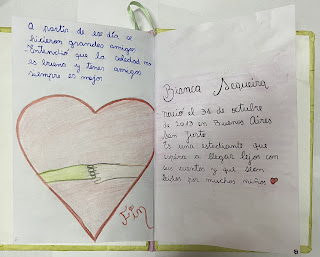 A partir de ese día se
hicieron grandes amigos
Entendió que la soledad no
es buena y tener amigos
siempre es mejor
Fin
Bianca Sequeira
nació el 31 de octubre
de 2013 en Buenos Aires
San Justo
Es una estudiante que
aspira a llegar lejos con
sus cuentos y que sean
leidos por muchos niños